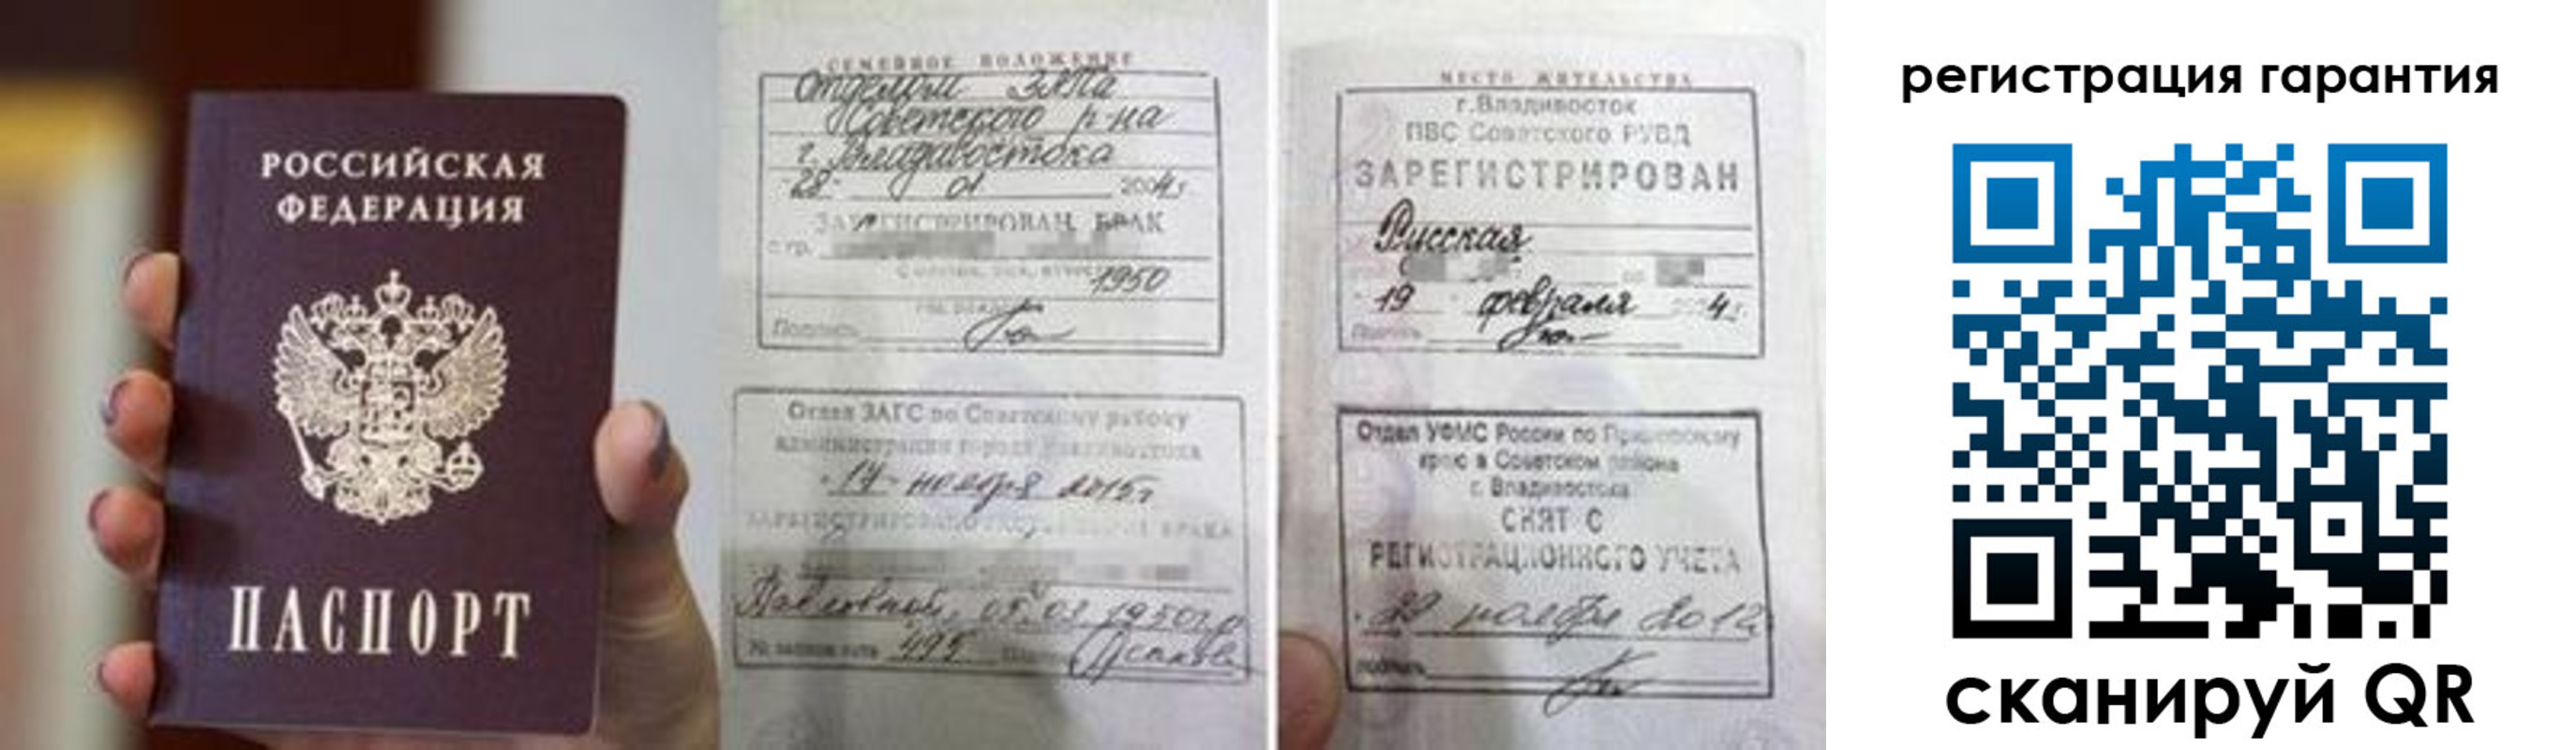 РОССИЙСКАЯ
ФЕДЕРАЦИЯ
ПАСПОРТ
СЕМЕЙНОЕ ПОЛОЖЕНИЕ
Отделом ЗАГСа
Советского р-на
г. Владивостока
"28" 01 2004г.
ЗАРЕГИСТРИРОВАН БРАК
с гр.
1950
Подпись
Отдел ЗАГС по Советскому району
администрации города Владивостока
"17" ноября 2015г
БРАКА
Павловной, 05.03.1950г.р
№ 495
МЕСТО ЖИТЕЛЬСТВА
г.Владивосток
ПВС Советского РУВД
ЗАРЕГИСТРИРОВАН
Русская
19 февраля 4г.
Подпись
Отдел УФМС России по Приморскому
краю в Советском районе
г. Владивостока
СНЯТ С
РЕГИСТРАЦИОННОГО УЧЕТА
ноября 2012
подпись
регистрация гарантия
сканируй QR